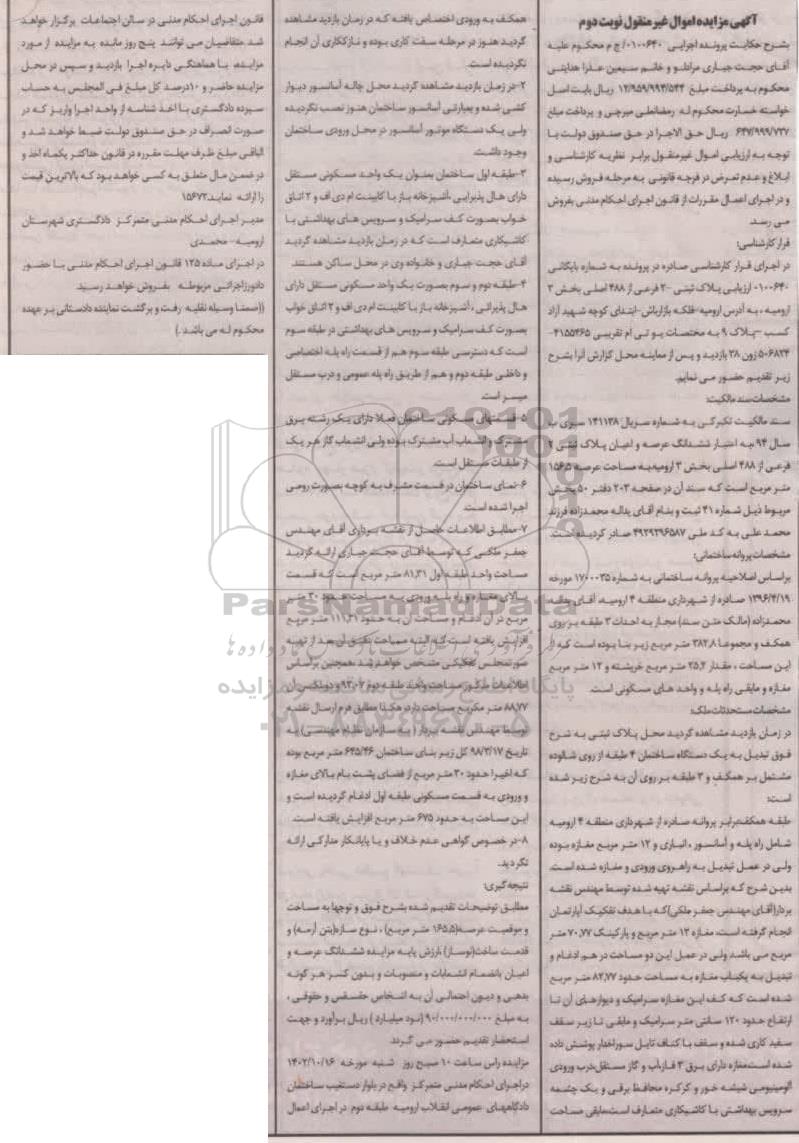 آگهی مزایده اموال غیر منقول نوبت دوم
بشرح حکایت پرونده اجرایی ۰۱۰۰۶۴۰/ج م محکوم علیه
آقای حجت جباری مرادلو و خانم سیمین عذرا هدایتی
محکوم به پرداخت مبلغ ۱۲/۹۵۹/۹۹۴/۵۴۴ ریال بابت اصل
خواسته خسارت محکوم له رمضانعلی میرچی و پرداخت مبلغ
۶۴۷/۹۹۹/۷۲۷ ریال حق الاجرا در حق صندوق دولت با
توجه به ارزیابی اموال غیرمنقول برابر نظریه کارشناسی و
ابلاغ و عدم تعرض در فرجه قانونی به مرحله فروش رسیده
و در اجرای اعمال مقررات از قانون اجرای احکام مدنی بفروش
می رسد.
قرار کارشناسی:
در اجرای قرار کارشناسی صادره در پرونده به شماره بایگانی
۰۱۰۰۶۴۰ ارزیابی پلاک ثبتی ۲۰ فرعی از ۴۸۸ اصلی بخش ۳
ارومیه ، به آدرس ارومیه-فلکه بازارباش- ابتدای کوچه شهید آزاد
کسب -پلاک ۹ به مختصات یو تی ام تقریبی ۴۱۵۵۴۶۵-
۵۰۶۸۲۴ زون ۳۸ بازدید و پس از معاینه محل گزارش آنرا بشرح
زیر تقدیم حضور می نمایم.
مشخصات سند مالکیت:
سند مالکیت تکبرگی به شماره سریال ۱۴۱۱۳۸ سری ب
سال ۹۴ ،به اعتبار ششدانگ عرصه و اعیان پلاک ثبتی ۲
فرعی از ۴۸۸ اصلی بخش ۳ ارومیه،به مساحت عرصه ۱۵۶.۵
متر مربع است که سند آن در صفحه ۲۰۳ دفتر ۵۰ بخش
مربوط ذیل شماره ۴۱ ثبت و بنام آقای یداله محمدزاده فرزند
محمد علی به کد ملی ۴۹۲۹۲۹۶۵۸۷ صادر گردیده است.
مشخصات پروانه ساختمانی:
براساس اصلاحیه پروانه ساختمانی به شماره ۱۷۰۰۰۳۵ مورخه
۱۳۹۶/۴/۱۹ صادره از شهرداری منطقه ۴ ارومیه، آقای یداله
محمدزاده (مالک متن سند) مجاز به احداث ۳ طبقه بر روی
همکف و مجموعا ۳۸۲،۸ متر مربع زیر بنا بوده است که از
این مساحت ، مقدار ۲۵،۲ متر مربع خرپشته و ۱۲ متر مربع
مغازه و مابقی راه پله و واحد های مسکونی است.
مشخصات مستحدثات ملک:
در زمان بازدید مشاهده گردید محل پلاک ثبتی به شرح
فوق تبدیل به یک دستگاه ساختمان ۴ طبقه از روی شالوده
مشتمل بر همکف و ۳ طبقه بر روی آن به شرح زیر شده
است:
طبقه همکف:برابر پروانه صادره از شهرداری منطقه ۴ ارومیه
شامل راه پله و آسانسور ، انباری و ۱۲ متر مربع مغازه بوده
ولی در عمل تبدیل به راهروی ورودی و مغازه شده است.
بدین شرح که براساس نقشه تهیه شده توسط مهندس نقشه
بردار(آقای مهندس جعفر ملکی)که با هدف تفکیک آپارتمان
انجام گرفته است، مغازه ۱۲ متر مربع و پارکینگ ۷۰،۷۷ متر
مربع می باشد ولی در عمل این دو مساحت در هم ادغام و
تبدیل به یکباب مغازه به مساحت حدود ۸۲،۷۷ متر مربع
شده است که کف این مغازه سرامیک و دیوارهای آن تا
ارتفاع حدود ۱۲۰ سانتی متر سرامیک و مابقی تا زیر سقف
سفید کاری شده و سقف با کناف تایل سوراخدار پوشش داده
شده است.مغازه دارای برق ۳ فاز،آب و گاز مستقل،درب ورودی
آلومینیومی شیشه خور و کرکره محافظ برقی و یک چشمه
سرویس بهداشتی با کاشیکاری متعارف است.مابقی مساحت
همکف به ورودی اختصاص یافته که در زمان بازدید مشاهده
گردید هنوز در مرحله سفت کاری بوده و نازککاری آن انجام
نگردیده است.
۲-در زمان بازدید مشاهده گردید محل چاله آسانسور دیوار
کشی شده و بعبارتی آسانسور ساختمان هنوز نصب نگردیده
ولی یک دستگاه موتور آسانسور در محل ورودی ساختمان
وجود داشت.
۳-طبقه اول ساختمان بعنوان یک واحد مسکونی مستقل
دارای هال پذیرایی ،آشپزخانه باز با کابینت ام دی اف و ۲ اتاق
خواب بصورت کف سرامیک و سرویس های بهداشتی با
کاشیکاری متعارف است که در زمان بازدید مشاهده گردید
آقای حجت جباری و خانواده وی در محل ساکن هستند.
۴-طبقه دوم و سوم بصورت یک واحد مسکونی مستقل دارای
هال پذیرائی ، آشپزخانه باز با کابینت ام دی اف و ۲ اتاق خواب
بصورت کف سرامیک و سرویس های بهداشتی در طبقه سوم
است که دسترسی طبقه سوم هم از قسمت راه پله اختصاصی
و داخلی طبقه دوم و هم از طریق راه پله عمومی و درب مستقل
میسر است.
۵- قسمتهای مسکونی ساختمان فعلا دارای یک رشته برق
مشترک و انشعاب آب مشترک بوده ولی انشعاب گاز هر یک
از طبقات مستقل است.
۶-نمای ساختمان در قسمت مشرف به کوچه بصورت رومی
اجرا شده است.
۷-مطابق اطلاعات حاصل از نقشه برداری آقای مهندس
جعفر ملکی که توسط آقای حجت جباری ارائه گردید
مساحت واحد طبقه اول ۸۱،۳۱ متر مربع است که قسمت
بالای مغازه و راه پله ورودی به مساحت حدود ۳۰ متر
مربع در آن ادغام و مساحت آن به حدود ۱۱۱،۳۱ متر مربع
افزایش یافته است که البته مساحت دقیق آن بعد از تهیه
صورتمجلس تفکیکی مشخص خواهد شد همچنین براساس
اطلاعات مذکور مساحت واحد طبقه دوم ۹۳،۰۲ و دوبلکس آن
۸۸،۷۷ متر مکربع مساحت دارد، هکذا مطابق فرم ارسال نقشه
توسط مهندس نقشه بردار ( به سازمان نظام مهندسی) به
تاریخ ۹۸/۳/۱۷ کل زیر بنای ساختمان ۶۴۵/۴۶ متر مربع بوده
که اخیرا حدود ۳۰ متر مربع از فضای پشت بام بالای مغازه
و ورودی به قسمت مسکونی طبقه اول ادغام گردیده است و
این مساحت به حدود ۶۷۵ متر مربع افزایش یافته است.
۸-در خصوص گواهی عدم خلاف و یا پایانکار مدارکی ارائه
نگردید.
نتیجه گیری:
مطابق توضیحات تقدیم شده بشرح فوق و توجها به مساحت
و موقعیت عرصه(۱۶۵،۵ متر مربع) ، نوع سازه(بتن آرمه) و
قدمت ساخت(نوساز) ،ارزش پایه مزایده ششدانگ عرصه و
اعیان بانضمام انشعابات و منصوبات و بدون کسر هر گونه
بدهی و دیون احتمالی آن به اشخاص حقیقی و حقوقی ،
به مبلغ ۹۰/۰۰۰/۰۰۰/۰۰۰ (نود میلیارد ) ریال برآورد و جهت
استحضار تقدیم حضور می گردد
مزایده راس ساعت ۱۰ صبح روز شنبه مورخه ۱۴۰۲/۱۰/۱۶
دراجرای احکام مدنی متمرکز واقع در بلوار دستغیب ساختمان
دادگاههای عمومی انقلاب ارومیه طبقه دوم در اجرای اعمال
قانون اجرای احکام مدنی در سالن اجتماعات برگزار خواهد
شد .متقاضیان می توانند پنج روز مانده به مزایده از مورد
مزایده، با هماهنگی دایره اجرا بازدید و سپس در محل
مزایده حاضر و ۱۰درصد کل مبلغ فی المجلس به حساب
سپرده دادگستری با اخذ شناسه از واحد اجرا واریز که در
صورت انصراف در حق صندوق دولت ضبط خواهد شد و
الباقی مبلغ ظرف مهلت مقرره در قانون حداکثر یکماه اخذ و
در ضمن مال متعلق به کسی خواهد بود که بالاترین قیمت
را ارائه نماید.۱۵۶۷۲
مدیر اجرای احکام مدنی متمرکز دادگستری شهرستان
ارومیه- محمدی
در اجرای ماده ۱۲۵ قانون اجرای احکام مدنی با حضور
دادورزاجرانی مربوطه بفروش خواهد رسید.
((ضمنا وسیله نقلیه رفت و برگشت نماینده دادستانی بر عهده
محکوم له می باشد .)
ParsNamadData
۰۲۱-۸۸۳۴۹۶۷۰-۵